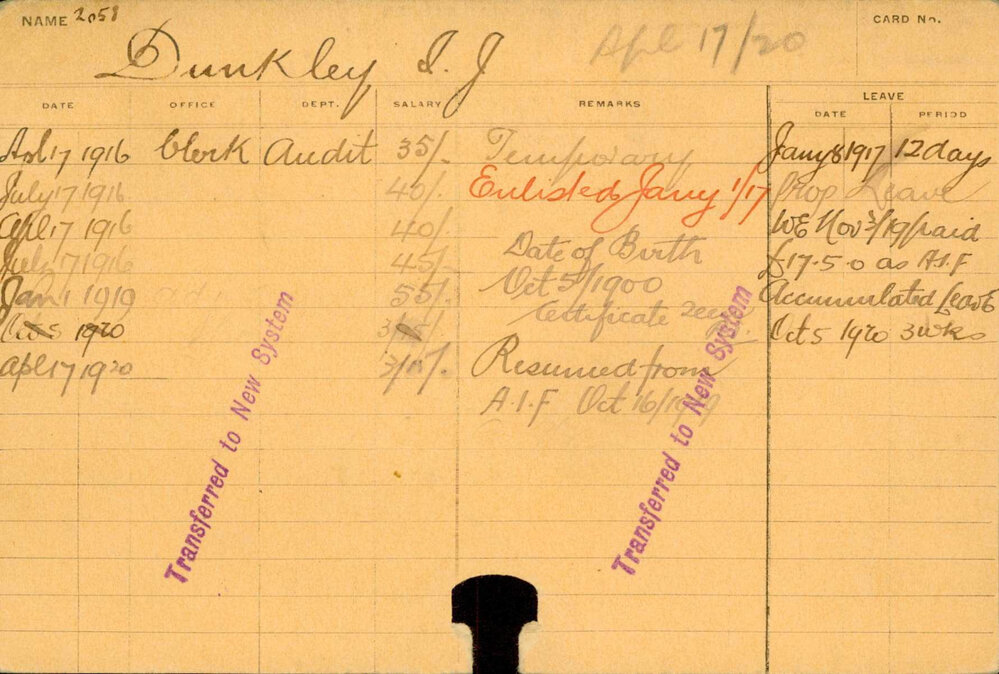 NAME 2058
CARD No.
Dunkley I. J
Apl 17/20
DATE OFFICE DEPT. SALARY REMARKS LEAVE
DATE PERIOD
Apl 17 1916 Clerk Audit 35/- Temporary Jany 8 1917 12 days
July 17 1916 40/- Enlisted Jany 1/17 Prop Leave
Apl 17 1916 40/- WE Nov /19 paid
July 7 1916 45/- Date of Birth £17.5.0 as A.I.F
Jan 1 1919 55/- Oct 5/1900 Accumulated Leave
Oct 5 1920 Certificate Oct 5 1920 3 wks
Apl 17 1920 Resumed from
A.I.F Oct 16/1919
Transferred to New System
Transferred to New System